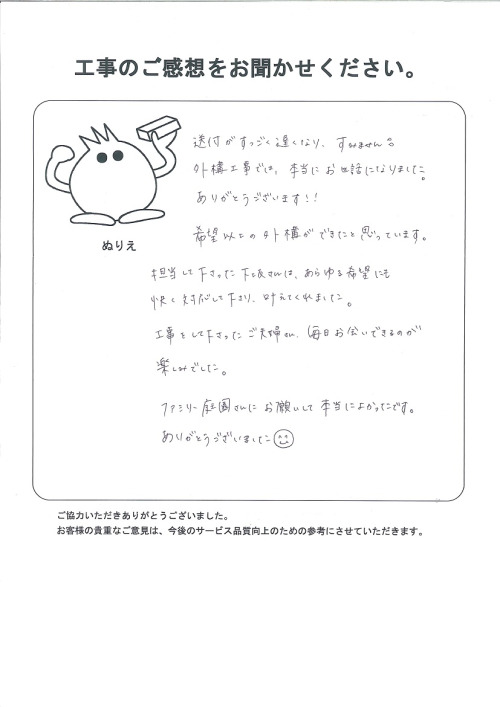 工事のご感想をお聞かせください。
送付がすっごく遅くなり、すみません。
外構工事では、本当にお世話になりました。
ありがとうございます!!
ぬりえ
希望以上の外構ができたと思っています。
担当して下さった下さんは、あらゆる希望にも
快く対応して下さり、叶えてくれました。
工事をして下さったご夫婦さん、毎日お会いできるのが
楽しみでした。
ファミリー庭園さんにお願いして本当によかったです。
ありがとうございました
ご協力いただきありがとうございました。
お客様の貴重なご意見は、今後のサービス品質向上のための参考にさせていただきます。